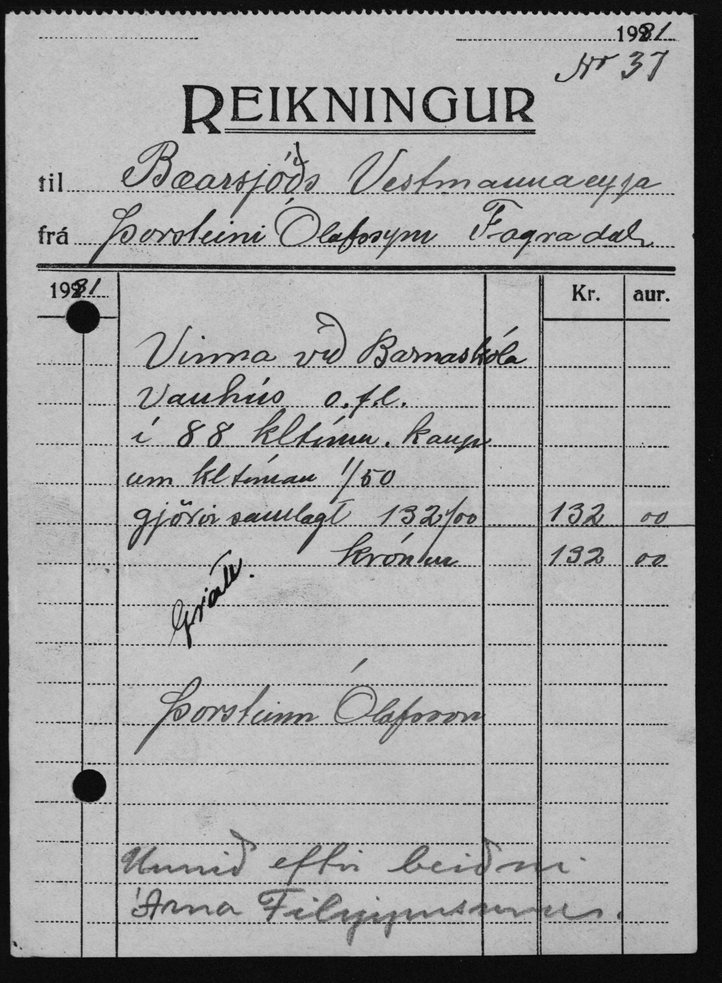 1931
Nr 37
REIKNINGUR
til Bæarsjóðs Vestmannaeyja
frá Þorsteini Ólafssyni Fagradal
1931 Kr. aur.
Vinna við Barnaskóla
Vanhús o.fl.
í 88 kltíma. kaup
um kltíman 1/50
gjörir samlagt 132/00 132 00
krónur 132 00
Þorsteinn Ólafsson
Unnið eftir beiðni
Árna Filippussonar.